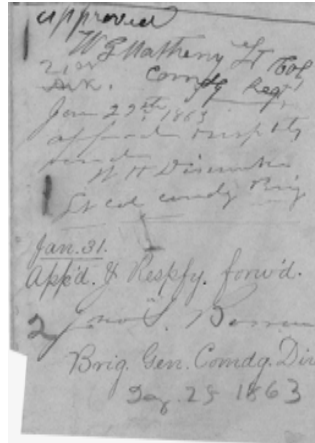 approved
W G Matheny Lt Col
21st Ark. Comdg Regt,
Jan 29th 1863
appd respfly
ford
W H Dismukes
Lt col comdg Brig
Jan. 31.
App'd. & Respfy. forw'd.
2
Brig. Gen. Comdg. Div
1863